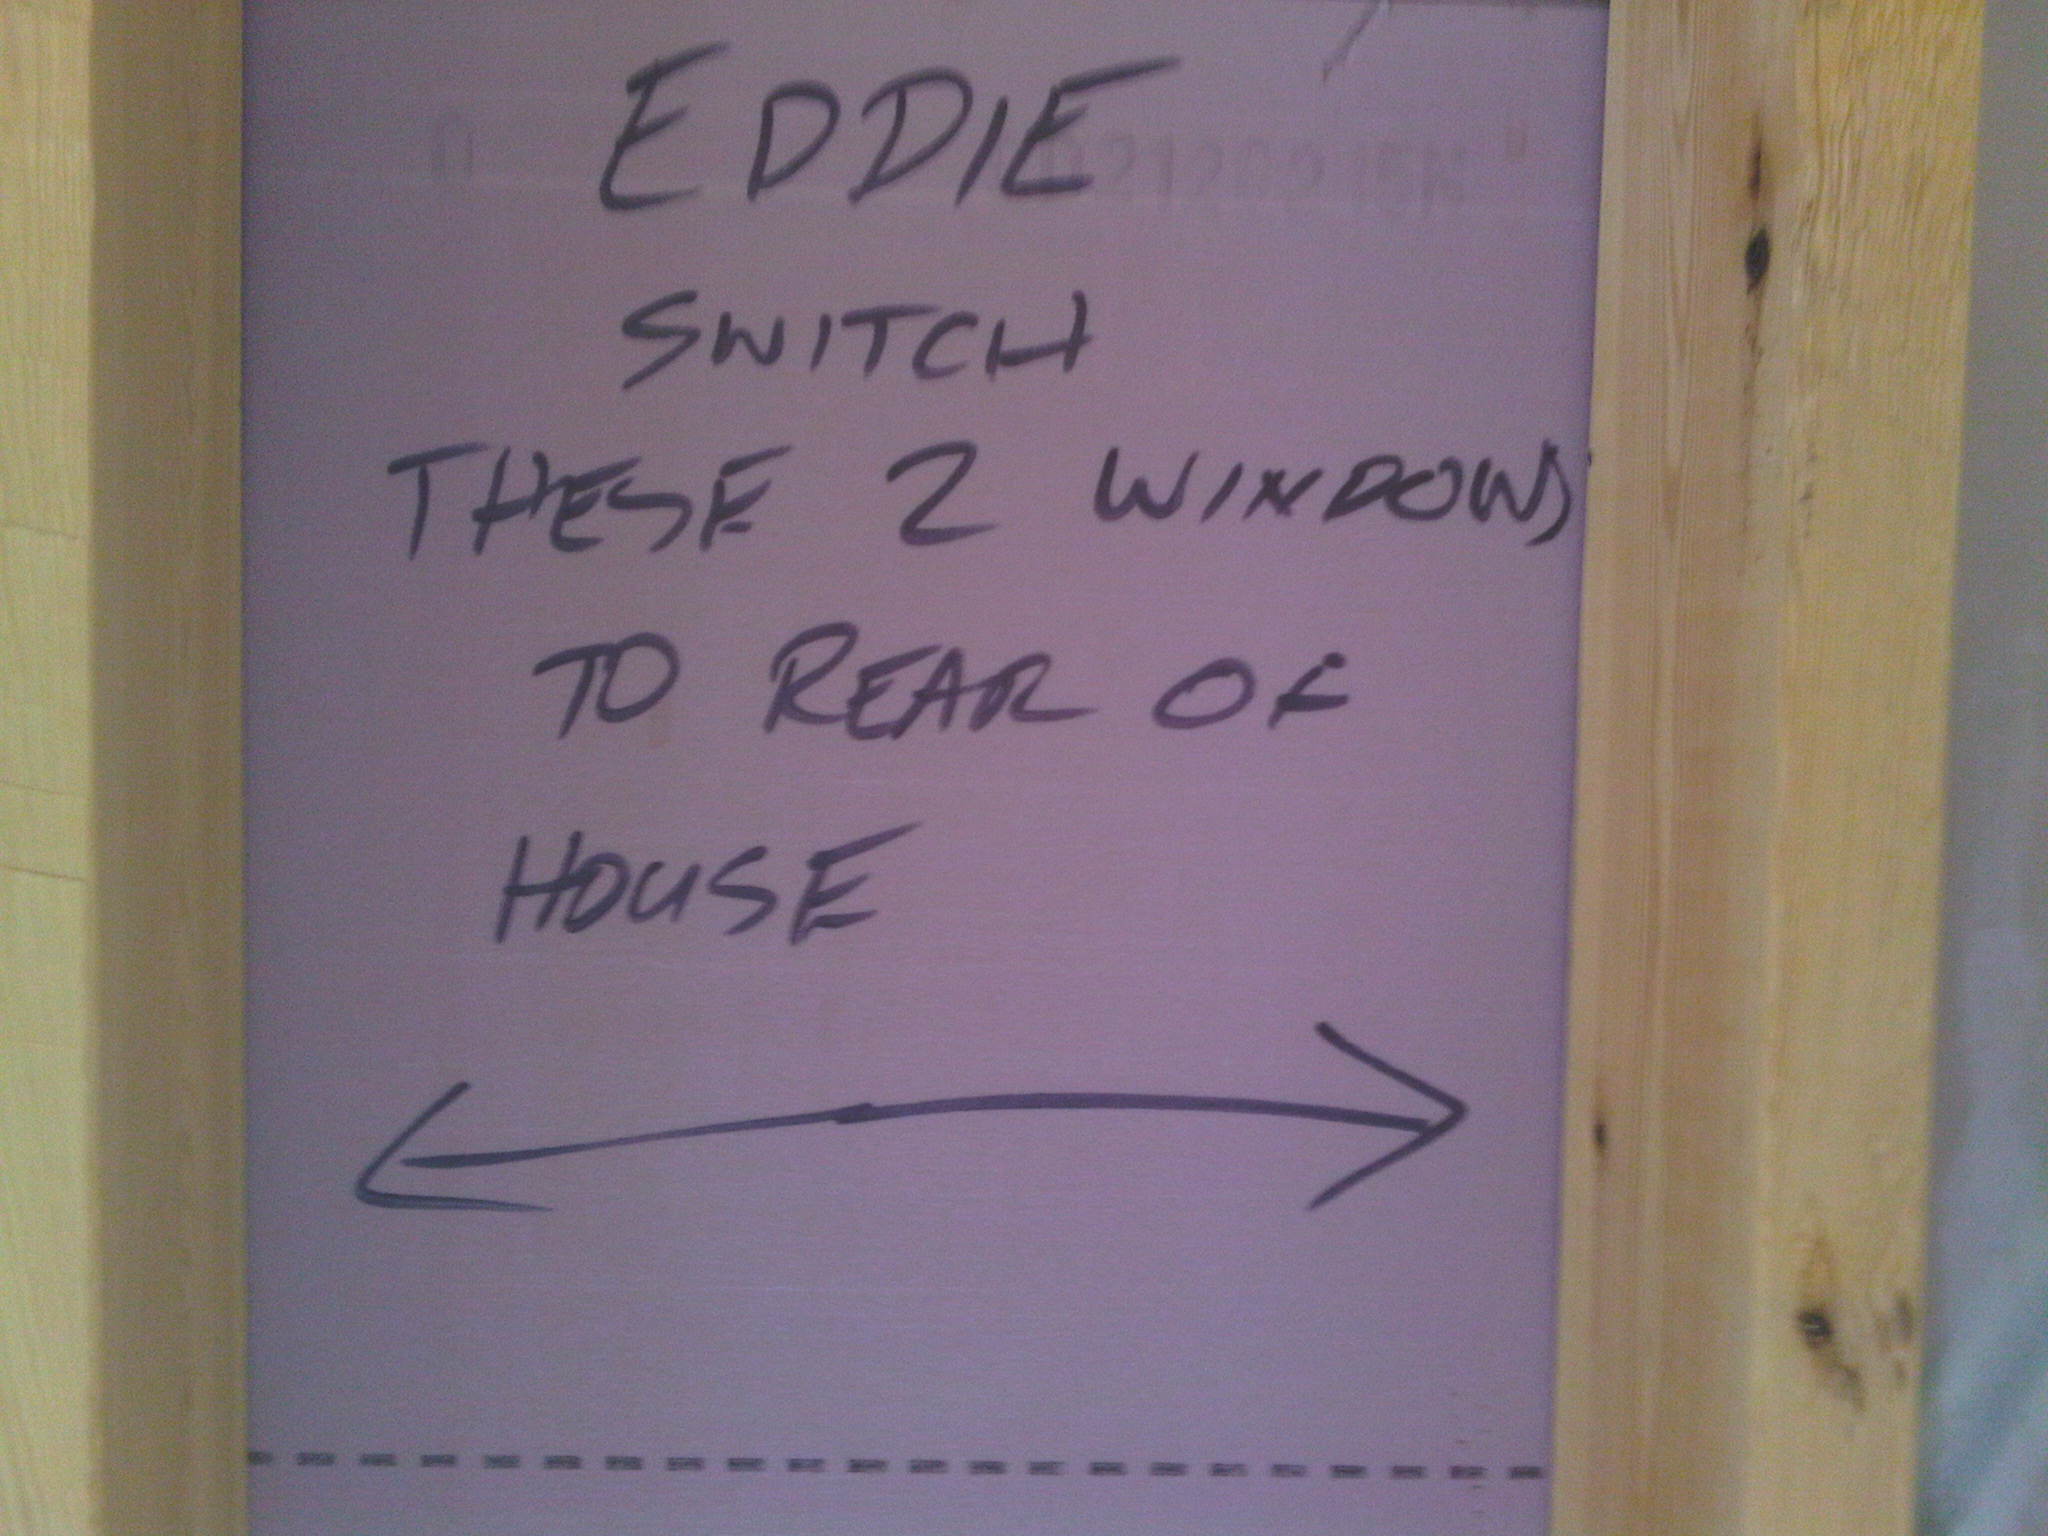 EDDIE
SWITCH
THESE 2 WINDOWS
TO REAR OF
HOUSE